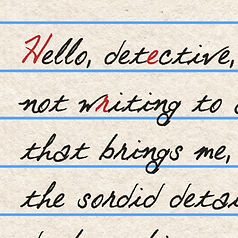 Hello, detective,
not writing to
that brings me,
the sordid detai